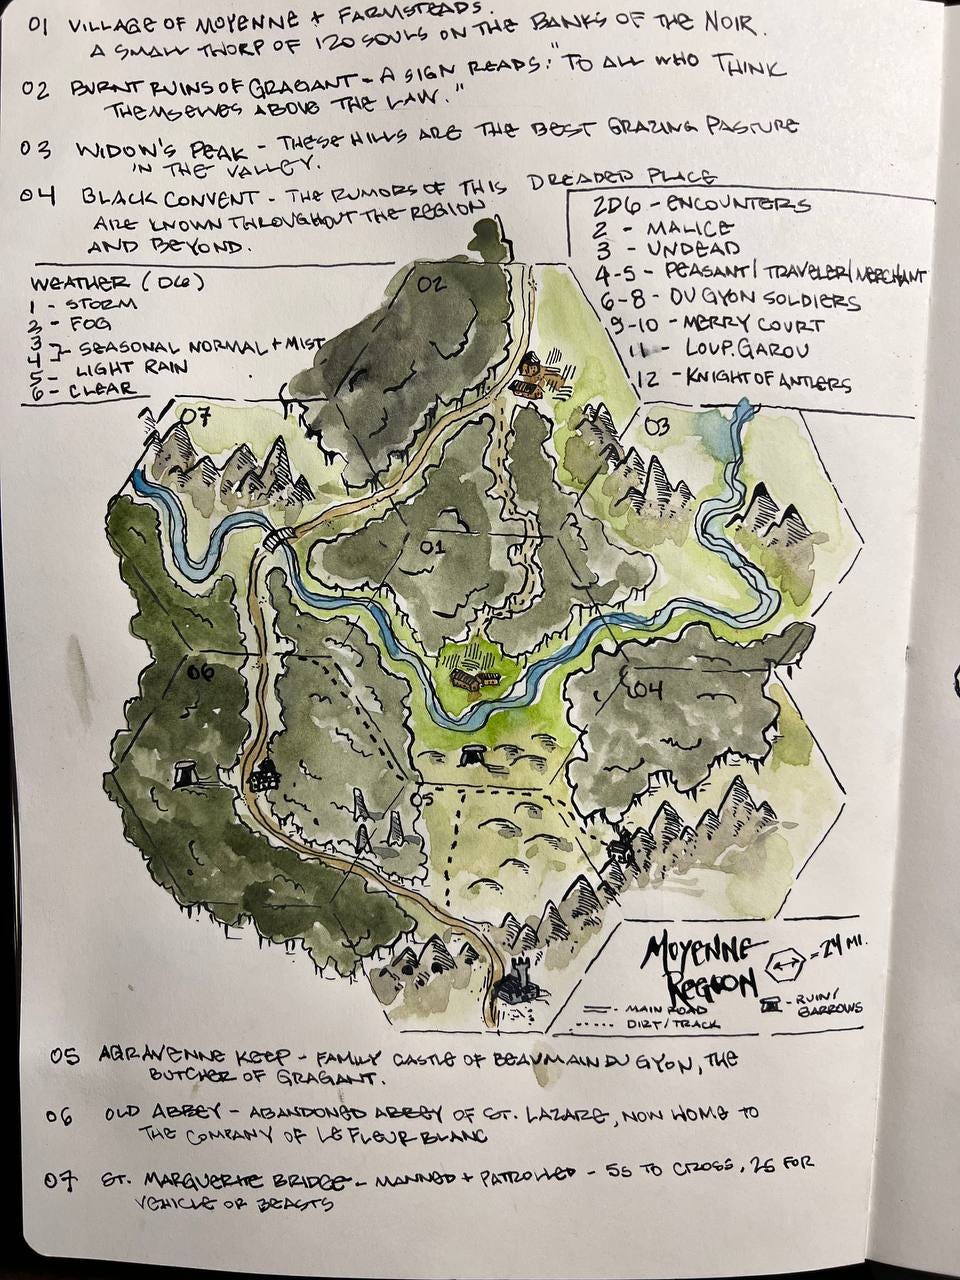 01 VILLAGE OF MOYENNE + FARMSTEADS.
A SMALL THORP OF 120 SOULS ON THE BANKS OF THE NOIR.
02 BURNT RUINS OF GRAGANT - A SIGN READS: "TO ALL WHO THINK
THEMSELVES ABOVE THE LAW."
03 WIDOW'S PEAK - THESE HILLS ARE THE BEST GRAZING PASTURE
IN THE VALLEY.
04 BLACK CONVENT - THE RUMORS OF THIS DREADED PLACE
ARE KNOWN THROUGHOUT THE REGION
AND BEYOND.
2D6 - ENCOUNTERS
2 - MALICE
3 - UNDEAD
4-5 - PEASANT/TRAVELER/MERCHANT
6-8 - DU GYON SOLDIERS
9-10 - MERRY COURT
11 - LOUP.GAROU
12 - KNIGHT OF ANTLERS
WEATHER (D6)
1 - STORM
2 - FOG
3
4 - SEASONAL NORMAL + MIST
5 - LIGHT RAIN
6 - CLEAR
02
07
03
01
06
04
05
MOYENNE
REGION
= 24 MI.
- MAIN ROAD
- DIRT/TRACK
- RUIN/
BARROWS
05 AGRAVENNE KEEP - FAMILY CASTLE OF BEAUMAIN DU GYON, THE
BUTCHER OF GRAGANT.
06 OLD ABBEY - ABANDONED ABBEY OF ST. LAZARE, NOW HOME TO
THE COMPANY OF LE FLEUR BLANC
07 ST. MARGUERITE BRIDGE - MANNED + PATROLLED - 5S TO CROSS, 2S FOR
VEHICLE OR BEASTS